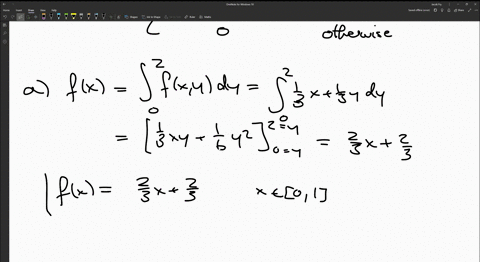 0 otherwise
a) f(x) = ∫₀² f(x,y) dy = ∫² 1/3 x + 1/3 y dy
= [1/3 xy + 1/6 y²] 2=y 0=y = 2/3 x + 2/3
f(x) = 2/3 x + 2/3 x ∈ [0,1]